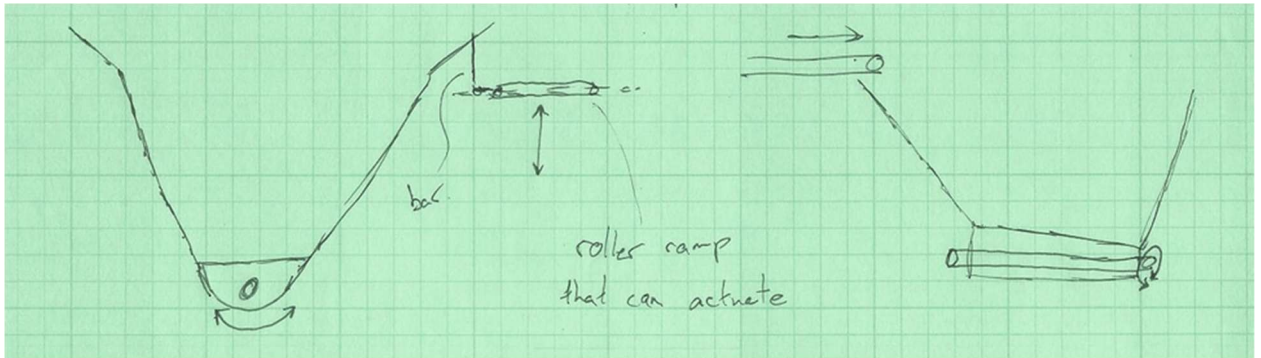 bar.
roller ramp
that can actuate